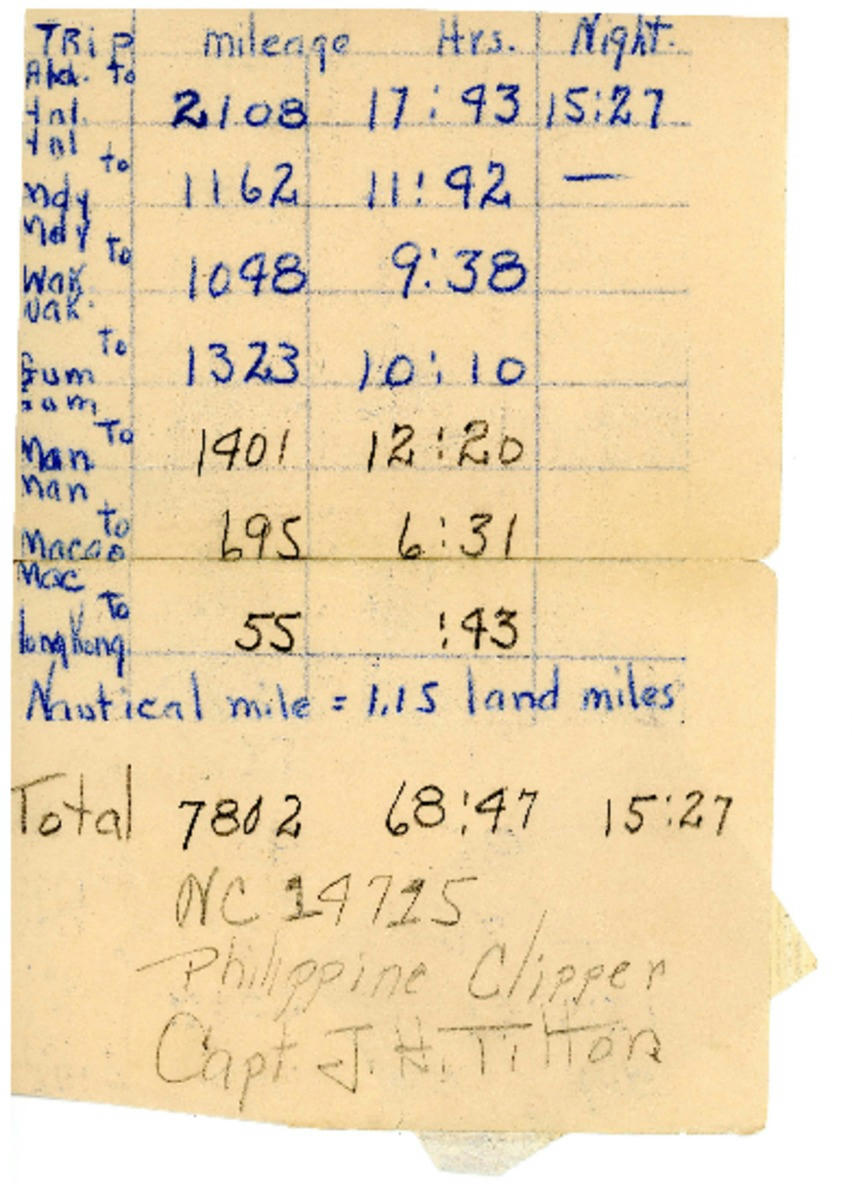 TRip mileage Hrs. Night.
Ala. to
Hnl. 2108 17:43 15:27
Hnl to
Mdy 1162 11:42 —
Mdy to
Wak 1048 9:38
Wak. to
Gum 1323 10:10
Gum To
Man 1401 12:20
Man to
Macao 695 6:31
Mac To
HongKong. 55 :43
Nautical mile = 1.15 land miles
Total 7802 68:47 15:27
NC 14715
Philippine Clipper
Capt. J. H. Tilton